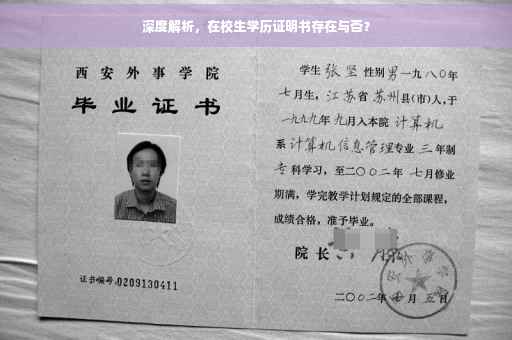 深度解析，在校生学历证明书存在与否？
西安外事学院
毕业证书
证书编号:0209130411
学生 张坚 性别男一九八〇年
七月生，江苏省苏州县(市)人，于
一九九九年九月入本院 计算机
系计算机信息管理专业 三 年制
专科学习，至二〇〇二年 七月修业
期满，学完教学计划规定的全部课程，
成绩合格，准予毕业。
院长
二〇〇二年 月 五日